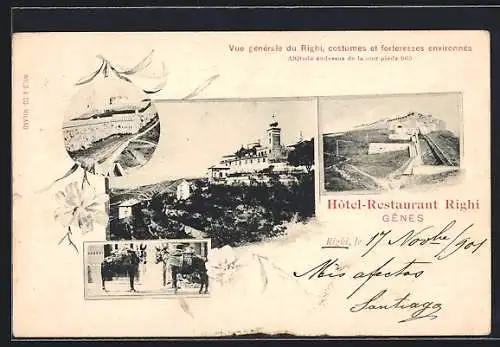 Vue générale du Righi, costumes et forteresses environnés
Altitude audessus de la mer pieds 965
Hôtel-Restaurant Righi
GÊNES
Righi, le 17 Novbe/901
Mis afectos
Santiago